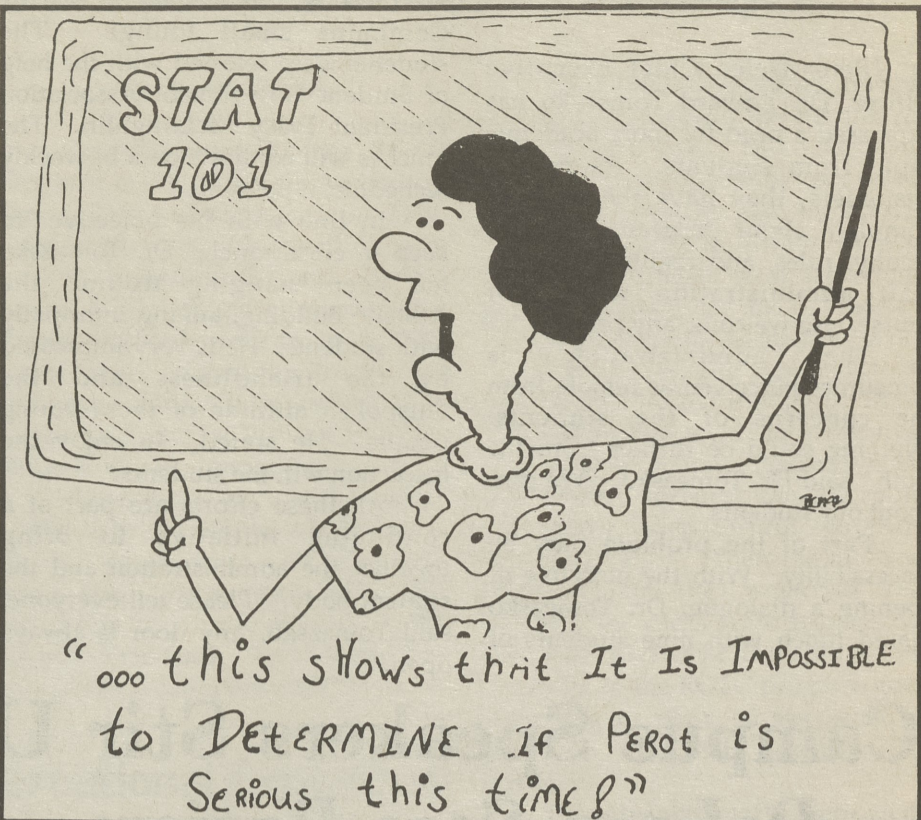 STAT
101
"... this sHows that It Is IMPOSSIBLE
to DETERMINE If PERot is
SERious this time!"